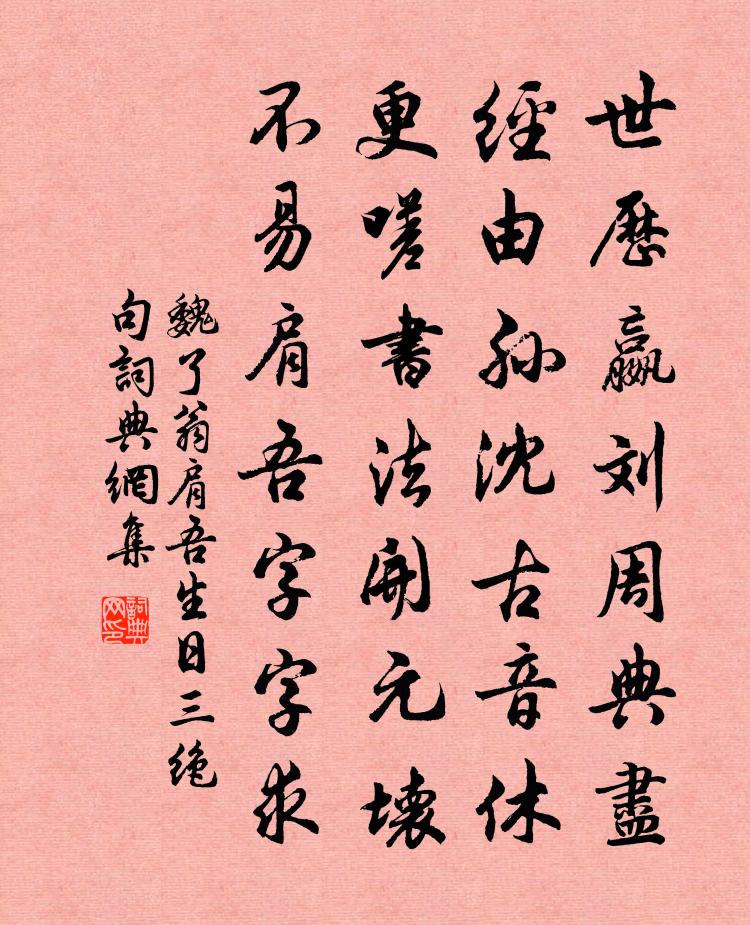 世歷嬴刘周典盡
經由孙沈古音休
更嗟書法開元壞
不易肩吾字字求
魏了翁肩吾生日三绝
句詞典網集
詞典
网印